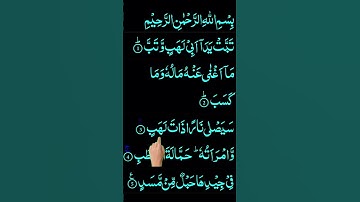 بِسْمِ اللهِ الرَّحْمٰنِ الرَّحِيْمِ
تَبَّتْ يَدَاۤ اَبِيْ لَهَبٍ وَّتَبَّ ؕ ①
مَاۤ اَغْنٰى عَنْهُ مَالُهٗ وَمَا
كَسَبَ ؕ ②
سَيَصْلٰى نَارًا ذَاتَ لَهَبٍ ③
وَّامْرَاَتُهٗ ؕ حَمَّالَةَ ④
فِيْ جِيْدِهَا حَبْلٌ مِّنْ مَّسَدٍ ⑤